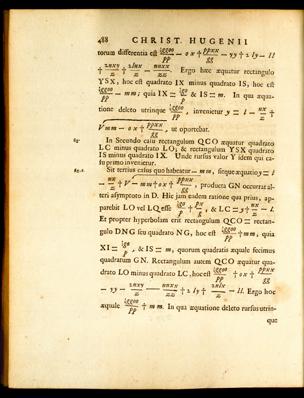 488 CHRIST. HUGENII
torum differentia est iggoo/pp - ox † ppxx/gg - yy † 2 ly - ll
† 2nxy/z † 2lnx/z - nnxx/zz. Ergo hæc æquatur rectangulo
YSX, hoc est quadrato IX minus quadrato IS, hoc est
iggoo/pp - mm; quia IX = igo/p & IS = m. In qua æqua-
tione deleto utrinque iggoo/pp, invenietur y = l - nx/z †
√mm - ox † ppxx/gg, ut oportebat.
In Secundo casu rectangulum QCO æquatur quadrato
LC minus quadrato LO; & rectangulum YSX quadrato
IS minus quadrato IX. Unde rursus valor Y idem qui ca-
su primo invenietur.
Sit tertius casus quo habeatur - mm, sicque æquatio y = l
- nx/z † √ - mm † ox † ppxx/gg, producta GN occurrat al-
teri asymptoto in D. Hic jam eadem ratione qua prius, ap-
parebit LO vel LQ esse igo/p † px/g, & LC = y † nx/z - l.
Et propter hyperbolam erit rectangulum QCO = rectan-
gulo DNG seu quadrato NG, hoc est iggoo/pp † mm; quia
XI = igo/p, & IS = m, quorum quadratis æquale fecimus
quadratum GN. Rectangulum autem QCO æquatur qua-
drato LO minus quadrato LC, hoc est iggoo/pp † ox † ppxx/gg
- yy - 2nxy/z - nnxx/zz † 2 ly † 2nlx/z - ll. Ergo hoc
æquale iggoo/pp † mm. In qua æquatione deleto rursus utrin-
que